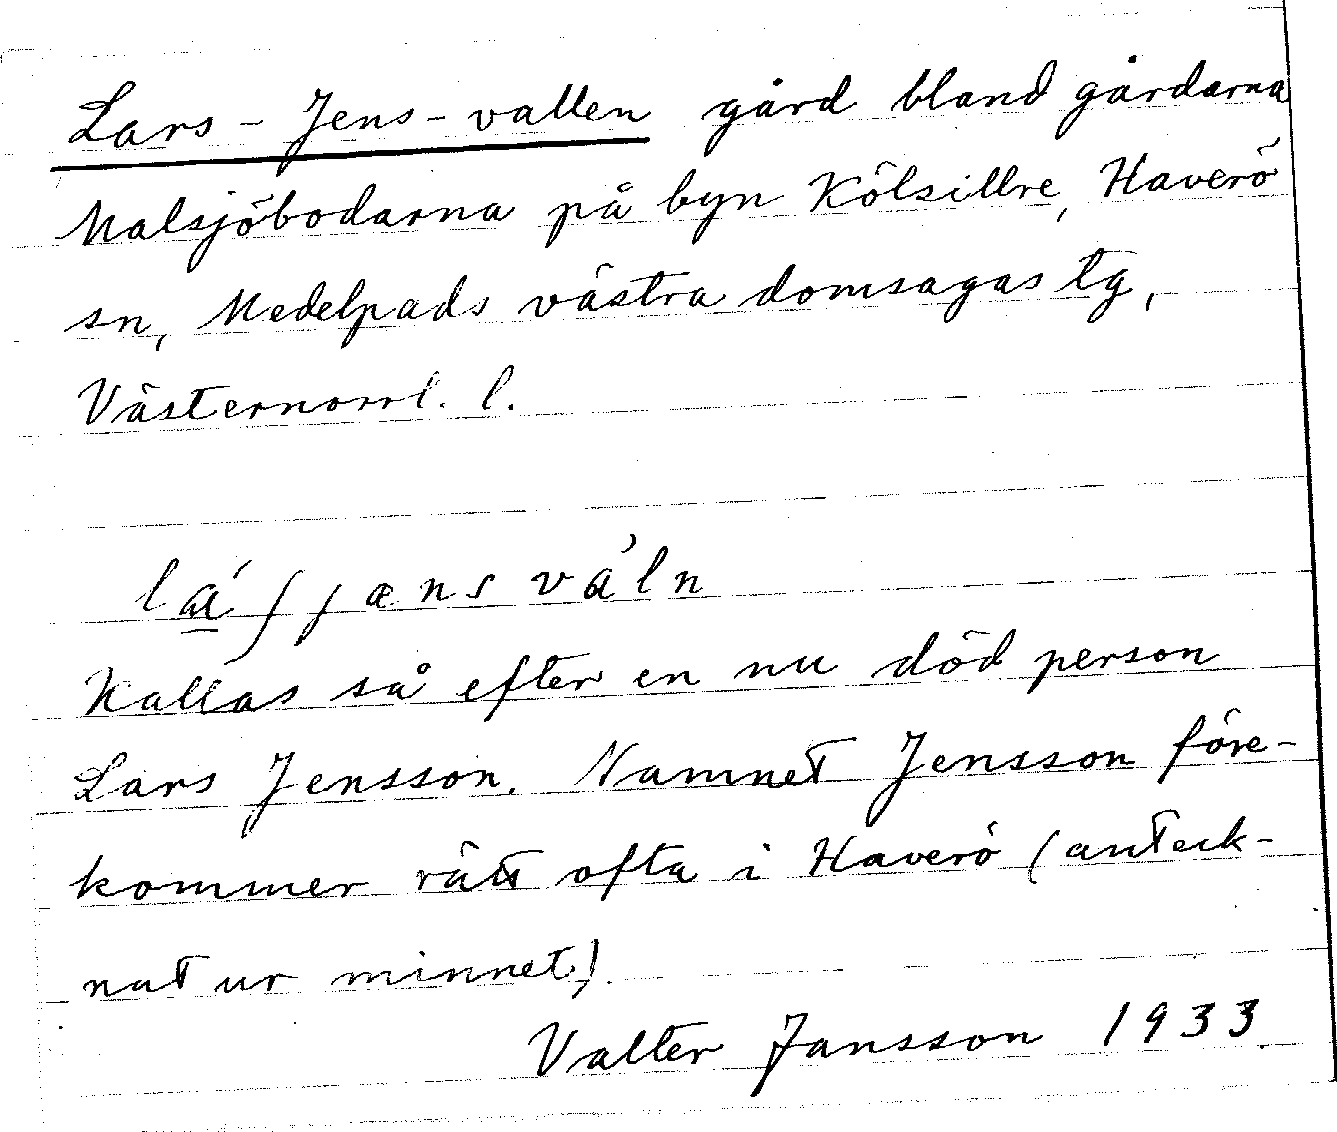 Lars-Jens-vallen gård bland gårdarna
Malsjöbodarna på byn Kölsillre, Haverö
sn, Medelpads västra domsagas tg,
Västernorrl. l.
lá̲ʃjænsvàln
Kallas så efter en nu död person
Lars Jensson. Namnet Jensson före-
kommer rätt ofta i Haverö (anteck-
nat ur minnet).
Valter Jansson 1933